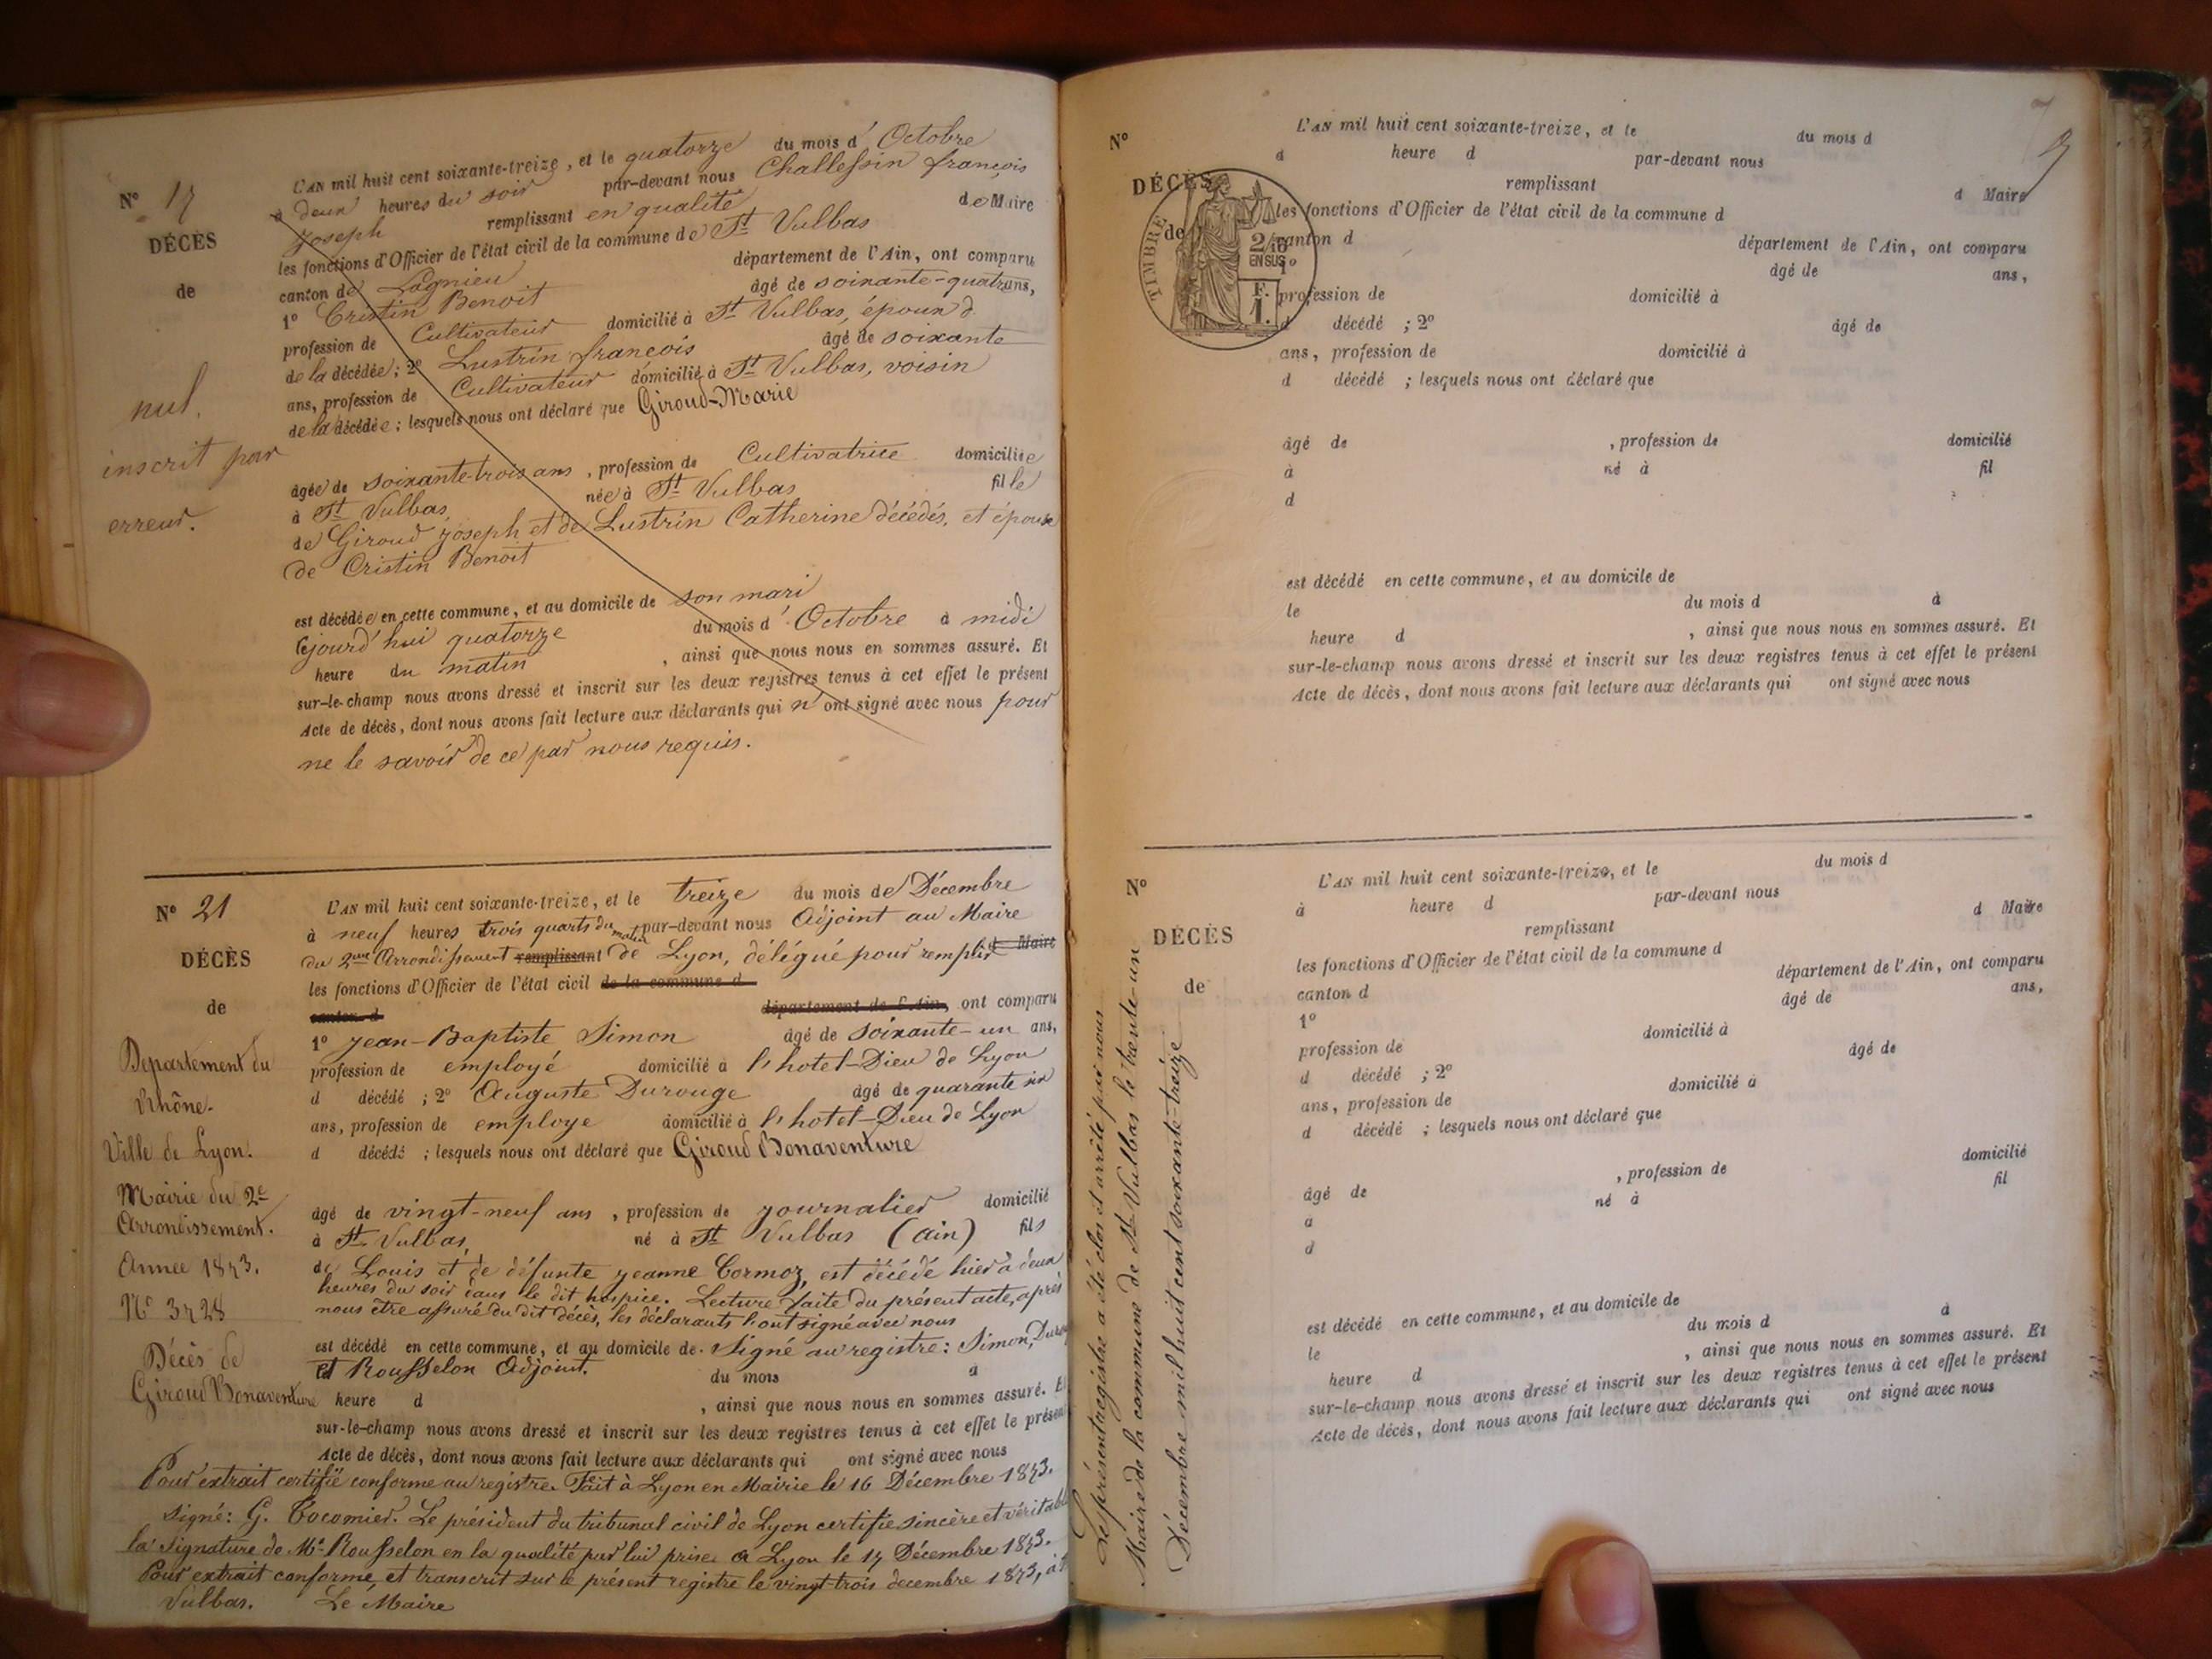 N° 17
DÉCÈS
de
nul.
inscrit par
erreur.
L'AN mil huit cent soixante-treize, et le quatorze du mois d'Octobre
à deux heures du soir par-devant nous Challessin françois
Joseph remplissant en qualité de Maire
les fonctions d'Officier de l'état civil de la commune de St Vulbas
canton de Lagnieu département de l'Ain, ont comparu
1° Cristin Benoit âgé de soixante-quatrans,
profession de Cultivateur domicilié à St Vulbas, époux d
de la décédée; 2° Lustrin françois âgé de soixante
ans, profession de Cultivateur domicilié à St Vulbas, voisin
de la décédée; lesquels nous ont déclaré que Giroud Marie
âgée de soixante-trois ans, profession de Cultivatrice domiciliée
à St Vulbas, née à St Vulbas fille
de Giroud Joseph et de Lustrin Catherine décédés, et épouse
de Cristin Benoit
est décédée en cette commune, et au domicile de son mari
lejourd'hui quatorze du mois d'Octobre à midi
heure du matin, ainsi que nous nous en sommes assuré. Et
sur-le-champ nous avons dressé et inscrit sur les deux registres tenus à cet effet le présent
Acte de décès, dont nous avons fait lecture aux déclarants qui n'ont signé avec nous pour
ne le savoir de ce par nous requis.
N° 21
DÉCÈS
de
Departement du
Rhône.
Ville de Lyon.
Mairie du 2e
Arrondissement.
Année 1873.
N° 3728
Décès de
Giroud Bonaventure
L'AN mil huit cent soixante-treize, et le treize du mois de Décembre
à neuf heures trois quarts du matin par-devant nous Adjoint au Maire
du 2me Arrondissement remplissant de Lyon, délégué pour remplir d Maire
les fonctions d'Officier de l'état civil de la commune d
canton d département de l'Ain, ont comparu
1° Jean-Baptiste Simon âgé de soixante-un ans,
profession de employé domicilié à l'hotel-Dieu de Lyon
d décédé ; 2° Auguste Durouge âgé de quarante six
ans, profession de employe domicilié à l'hotel-Dieu de Lyon
d décédé ; lesquels nous ont déclaré que Giroud Bonaventure
âgé de vingt-neuf ans, profession de journalier domicilié
à St Vulbas, né à St Vulbas (ain) fils
de Louis et de défunte Jeanne Cormoz, est décédé hier à deux
heures du soir dans le dit hospice. Lecture faite du présent acte, après
nous être assuré du dit décès, les déclarants l'ont signé avec nous
est décédé en cette commune, et au domicile de. Signé au registre: Simon, Durou
et Rousselon Adjoint. du mois à
heure d , ainsi que nous nous en sommes assuré. E
sur-le-champ nous avons dressé et inscrit sur les deux registres tenus à cet effet le présen
Acte de décès, dont nous avons fait lecture aux déclarants qui ont signé avec nous
Pour extrait certifié conforme au registre. Fait à Lyon en Mairie le 16 Décembre 1873.
signé: G. Cocomier. Le président du tribunal civil de Lyon certifie sincère et véritabl
la signature de Mr Rousselon en la qualité par lui prise. a Lyon le 17 Décembre 1873.
Pour extrait conforme et transcrit sur le présent registre le vingt-trois decembre 1873, à St
Vulbas. Le Maire
Le présent registre a été clos et arrêté par nous
Maire de la commune de St Vulbas le trente-un
Décembre mil huit cent soixante-treize
N°
DÉCÈS
de
TIMBRE
2/10
EN SUS
F.
1.
L'AN mil huit cent soixante-treize, et le du mois d
à heure d par-devant nous
remplissant d Maire
les fonctions d'Officier de l'état civil de la commune d
canton d département de l'Ain, ont comparu
1° âgé de ans,
profession de domicilié à
d décédé ; 2° âgé de
ans, profession de domicilié à
d décédé ; lesquels nous ont déclaré que
âgé de , profession de domicilié
à né à fil
d
est décédé en cette commune, et au domicile de
le du mois d à
heure d , ainsi que nous nous en sommes assuré. Et
sur-le-champ nous avons dressé et inscrit sur les deux registres tenus à cet effet le présent
Acte de décès, dont nous avons fait lecture aux déclarants qui ont signé avec nous
N°
DÉCÈS
de
L'AN mil huit cent soixante-treize, et le du mois d
à heure d par-devant nous
remplissant d Maire
les fonctions d'Officier de l'état civil de la commune d
canton d département de l'Ain, ont comparu
1° âgé de ans,
profession de domicilié à
d décédé ; 2° âgé de
ans, profession de domicilié à
d décédé ; lesquels nous ont déclaré que
âgé de , profession de domicilié
à né à fil
d
est décédé en cette commune, et au domicile de
le du mois d à
heure d , ainsi que nous nous en sommes assuré. Et
sur-le-champ nous avons dressé et inscrit sur les deux registres tenus à cet effet le présent
Acte de décès, dont nous avons fait lecture aux déclarants qui ont signé avec nous